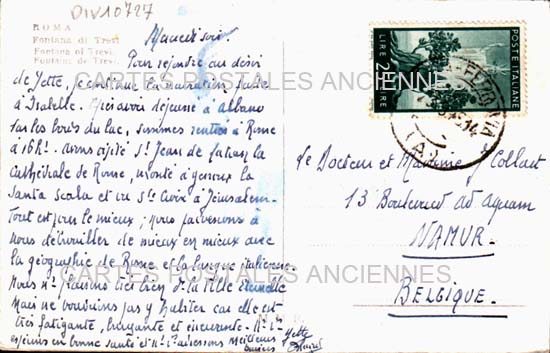 DIV10727
ROMA
Fontana di Trevi
Fontana ni Trevi.
Fontana de Trevi.
Mardi soir.
Pour rejoindre au désir
de Yette, je continue la narration faite
à Isabelle. Après avoir déjeuné à Albano
sur les bords du lac, sommes rentrés à Rome
à 16h. Avons visité St Jean de Latran la
Cathédrale de Rome, monté à genoux la
Santa Scala et vu Ste Croix à Jérusalem.
Tout est pour le mieux, nous parvenons à
nous débrouiller de mieux en mieux avec
la géographie de Rome et la langue italienne.
Nous n. plaisons très bien ds la Ville Eternelle
mais ne voudrions pas y habiter car elle est
très fatigante, bruyante et énervante. N. v.
espérons en bonne santé et n. v. adressons Meilleurs
baisers Yette
CARTES POSTALES ANCIENNES
CARTES POSTALES ANCIENNES
POSTE ITALIANE
LIRE 2
Le Docteur et Madame J Collart
13 Boulevard ad aquam
NAMUR.
BELGIQUE.